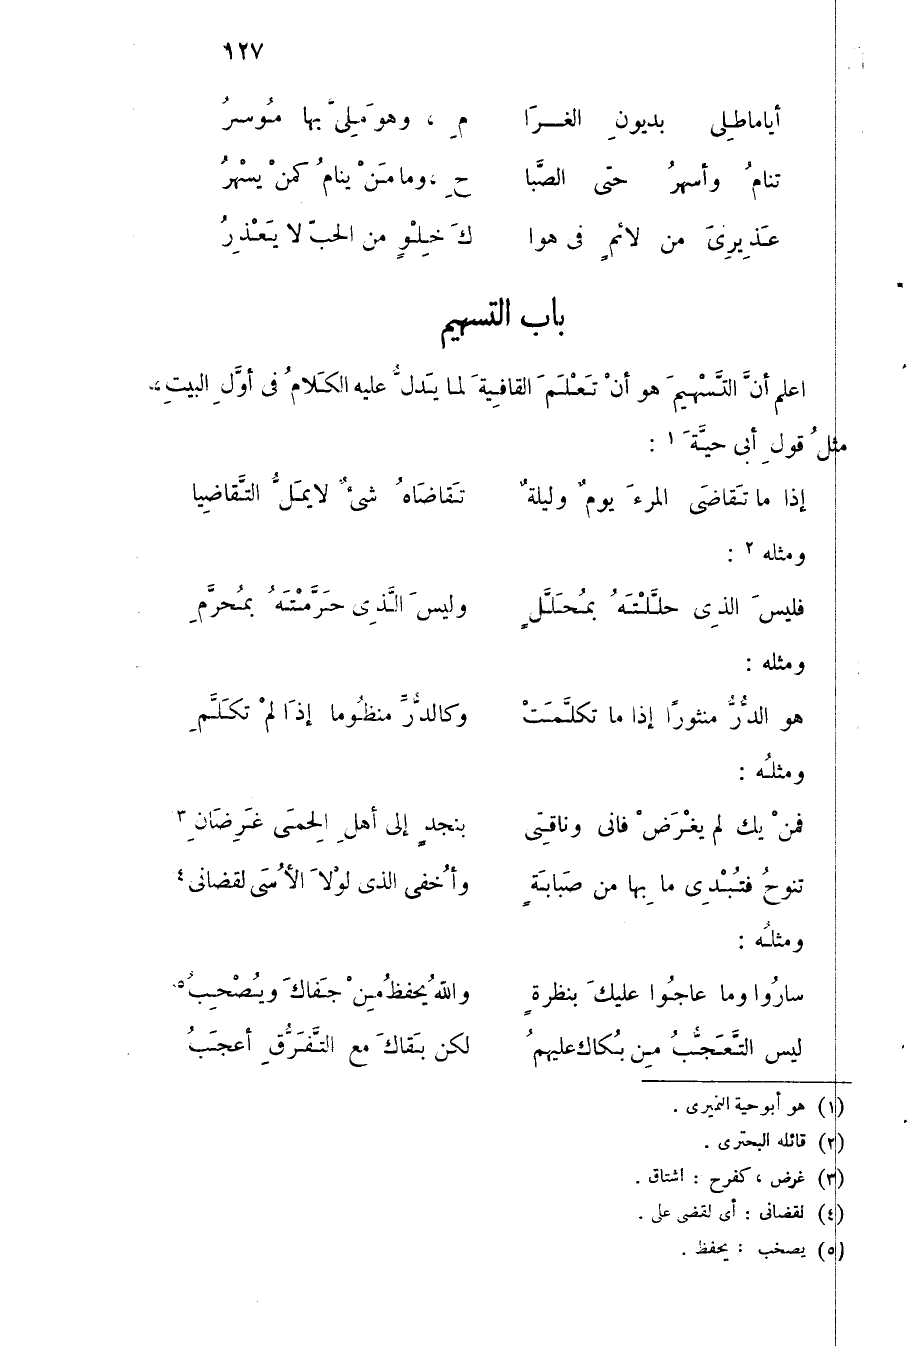 ١٢٧
أياماطِلى بديونِ الغــرَا مِ ، وهو مَلِىّ بها مُوسرُ
تنامُ وأسهرُ حتّى الصَّبا حِ ، وما مَنْ ينامُ كمنْ يسْهرُ
عَذِيرِىَ من لائمٍ فى هوا كَ خِلْوٍ من الحبّ لا يَعْذرُ
باب التسهيم
اعلم أنَّ التَّسْهيمَ هو أنْ تَعْلَمَ القافيةَ لما يَدلُّ عليه الكَلامُ فى أوَّلِ البيتِ ،
مثلُ قولِ أبى حيَّةَ ١ :
إذا ما تَقاضَى المرءَ يومٌ وليلةٌ تَقاضَاهُ شىءٌ لا يمَلُّ التَّقاضِيا
ومثله ٢ :
فليسَ الذِى حلَّلْتَهُ بمُحَلَّلٍ وليسَ الَّذِى حَرَّمْتَهُ بمُحرَّمِ
ومثله :
هو الدُّرُّ منثورًا إذا ما تكلَّمَتْ وكالدُّرِّ منظُوما إذَا لمْ تكَلَّمِ
ومثلُه :
فمنْ يك لم يغْرَضْ فانى وناقتِى بنجدٍ إلى أهلِ الِحمَى غَرِضَانِ ٣
تنوحُ فتُبْدِى ما بِها من صَبَابَةٍ وأُخفى الذى لوْلاَ الأُسَى لقضانى ٤
ومثلُه :
سارُوا وما عاجُوا عليكَ بنظرةٍ واللهُ يحفظُ مِنْ جَفاكَ ويُصْحِبُ ٥
ليس التَّعَجُّبُ مِن بُكاك عليهمُ لكن بَقاكَ مع التَّفَرُّقِ أعجَبُ
(١) هو أبو حية النميرى .
(٢) قائله البحترى .
(٣) غرض ، كفرح : اشتاق .
(٤) لقضانى : أى لقضى على .
(٥) يصخب : يحفظ .